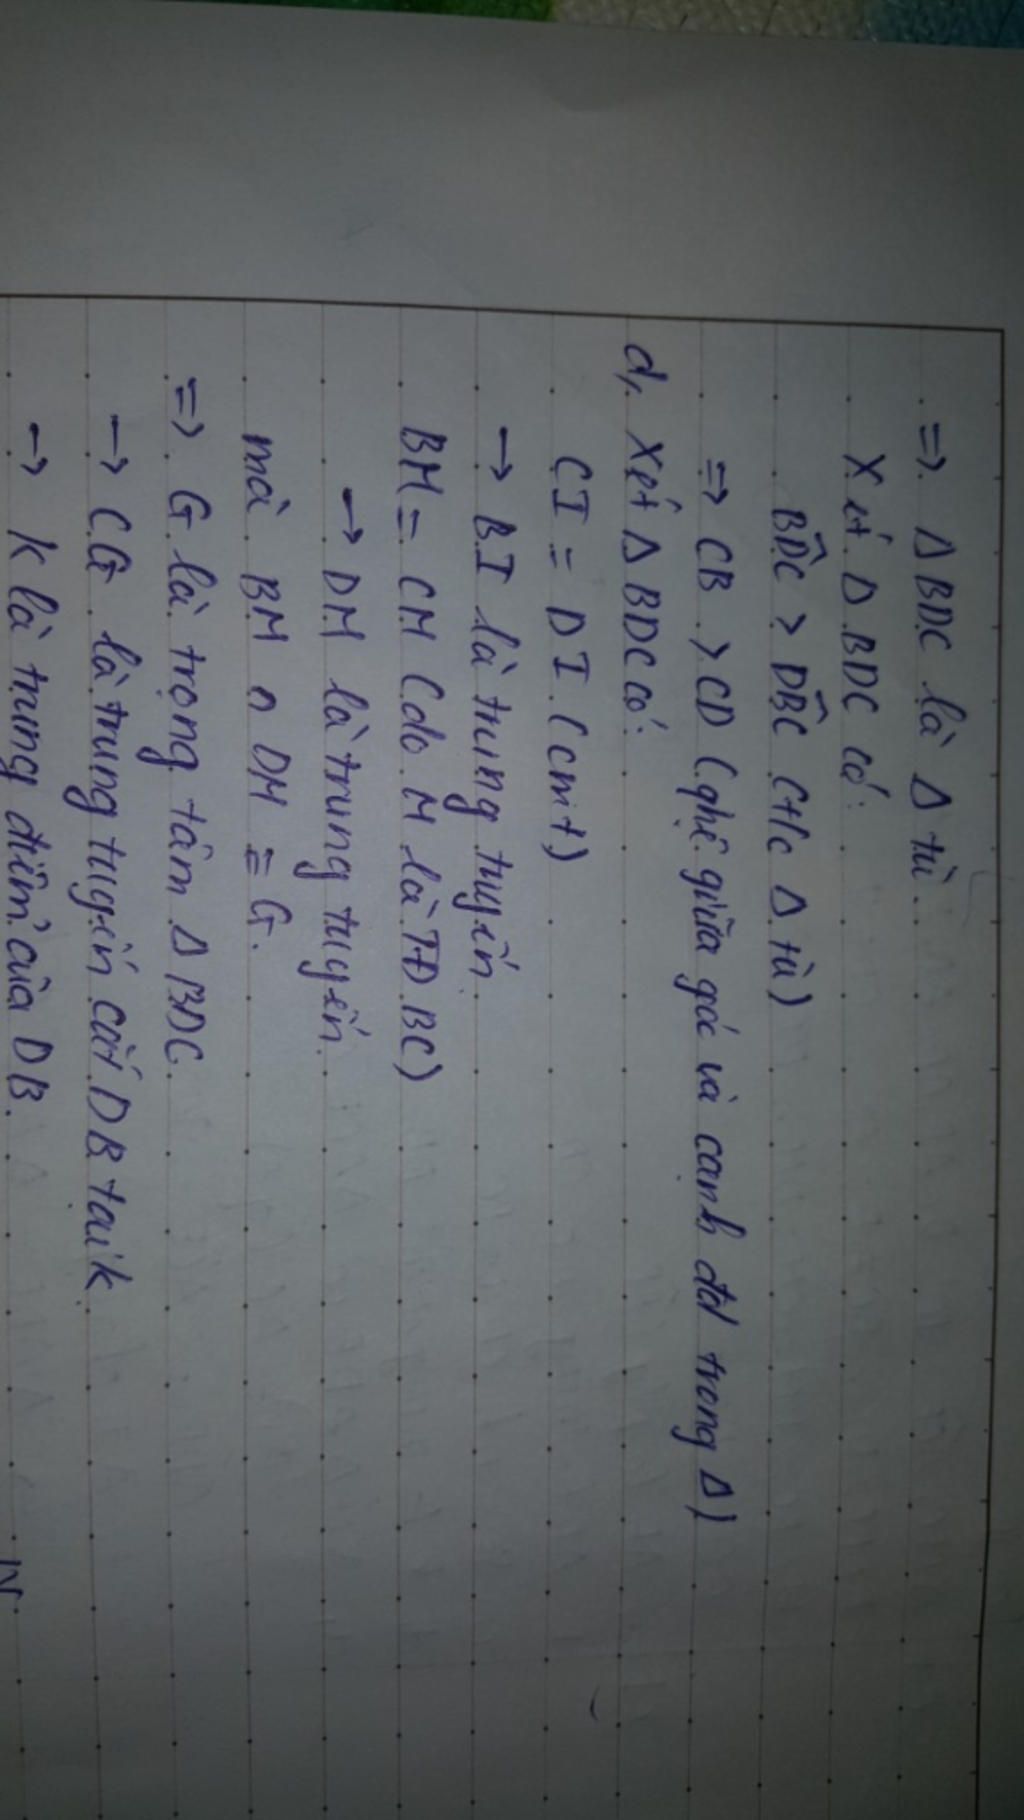 => Δ BDC là Δ tù.
Xét Δ BDC có:
BDC > DBC (t/c Δ tù)
=> CB > CD (qhệ giữa góc và cạnh đd trong Δ)
d, Xét Δ BDC có:
CI = DI (cmt)
→ BI là trung tuyến.
BM = CM (do M là TĐ BC)
→ DM là trung tuyến.
mà BM ∩ DM = G.
=> G là trọng tâm Δ BDC.
→ CG là trung tuyến cắt DB tại k
→ K là trung điểm của DB.
N